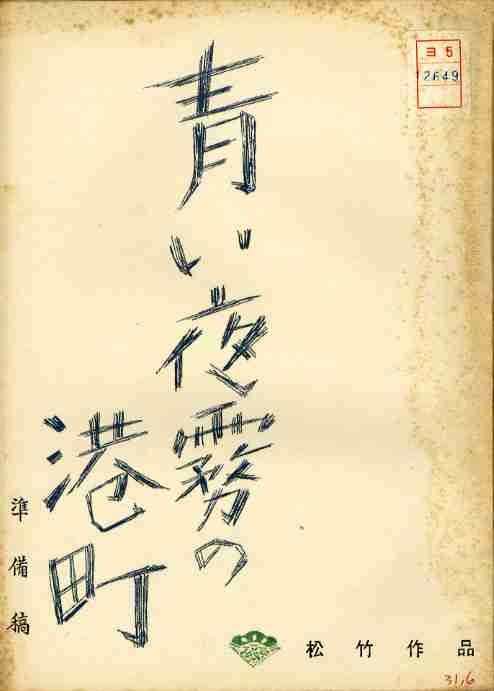 ヨ5
2649
青い夜霧の
港町
準備稿
松竹作品
31,6